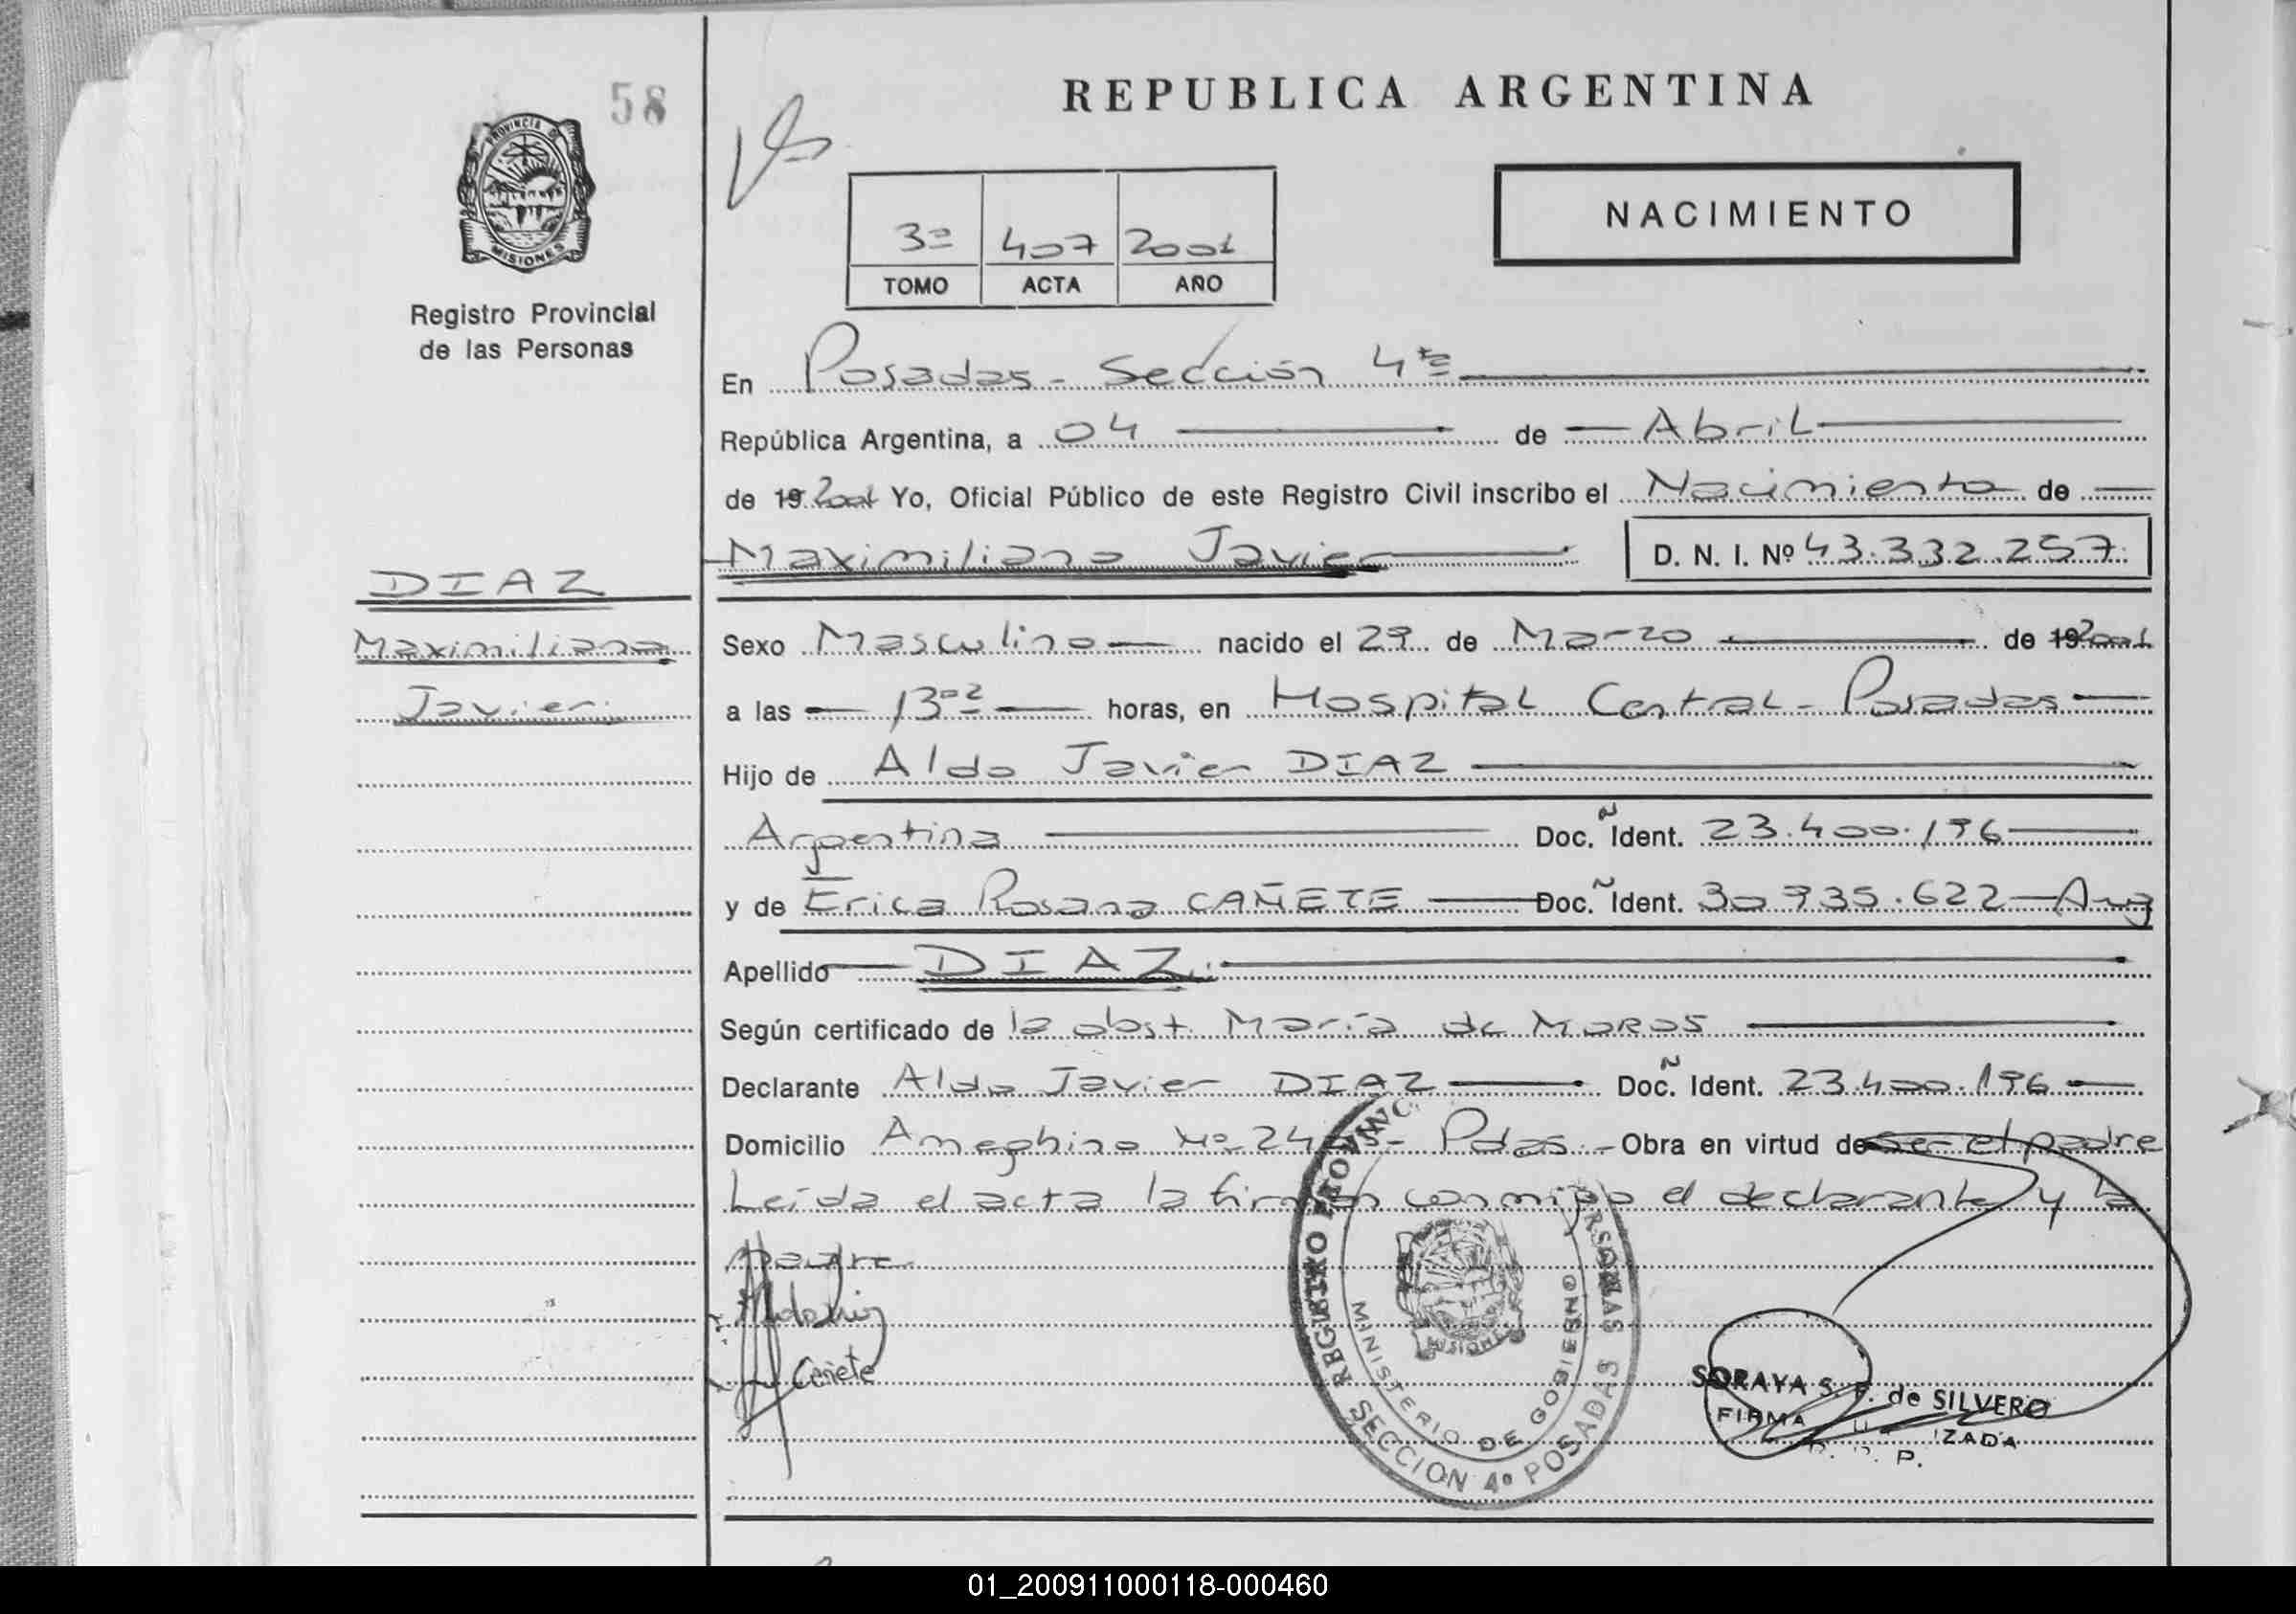 58
REPUBLICA ARGENTINA
PROVINCIA DE
MISIONES
Registro Provincial
de las Personas
3º 407 2001
TOMO ACTA AÑO
NACIMIENTO
En Posadas - Sección 4ta
República Argentina, a 04 de Abril
de 19 2001 Yo, Oficial Público de este Registro Civil inscribo el Nacimiento de
Maximiliano Javier D. N. I. Nº 43.332.257
DIAZ
Maximiliano
Javier
Sexo Masculino nacido el 29 de Marzo de 19 2001
a las 13 horas, en Hospital Central - Posadas
Hijo de Aldo Javier DIAZ
Argentina Doc. Ident. 23.400.196
y de Erica Rosana CAÑETE Doc. Ident. 30.935.622 - Arg
Apellido DIAZ.
Según certificado de la obst. María de Moras
Declarante Aldo Javier DIAZ Doc. Ident. 23.400.196
Domicilio Ameghino Nº Pdas. - Obra en virtud de ser el padre
Leída el acta la firman conmigo el declarante y la
madre
Cañete
REGISTRO PROVINC PERSONAS
MINISTERIO DE GOBIERNO
MISIONES
SECCION 4º POSADAS
SORAYA S. F. de SILVERO
FIRMA IZADA
P.
01_200911000118-000460